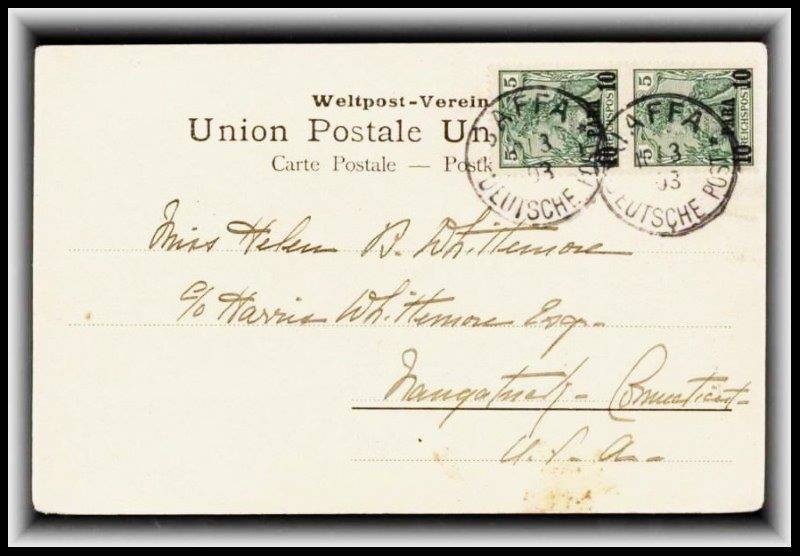 Weltpost-Verein
Union Postale Un
Carte Postale — Postk
5 5 10 PARA 10
5 5 REICHSPOST 10 PARA 10
JAFFA
13
03
DEUTSCHE POST
JAFFA
13
03
DEUTSCHE POST
Miss Helen B. Whittemore
c/o Harris Whittemore Esq.
Naugatuck - Connecticut -
U. S. A. -